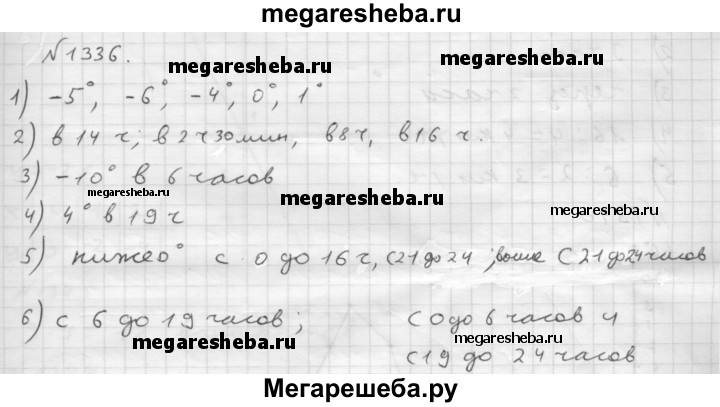 megaresheba.ru
№1336.
megaresheba.ru megaresheba.ru
1) -5°, -6°, -4°, 0°, 1°
2) в 14 ч; в 2 ч 30 мин, в 8 ч, в 16 ч.
3) -10° в 6 часов
megaresheba.ru megaresheba.ru
4) 4° в 19 ч
5) ниже 0° с 0 до 16 ч, с 21 до 24; выше с 21 до 24 часов
6) с 6 до 19 часов; с 0 до 6 часов и
с 19 до 24 часов
megaresheba.ru megaresheba.ru
Мегарешеба.ру